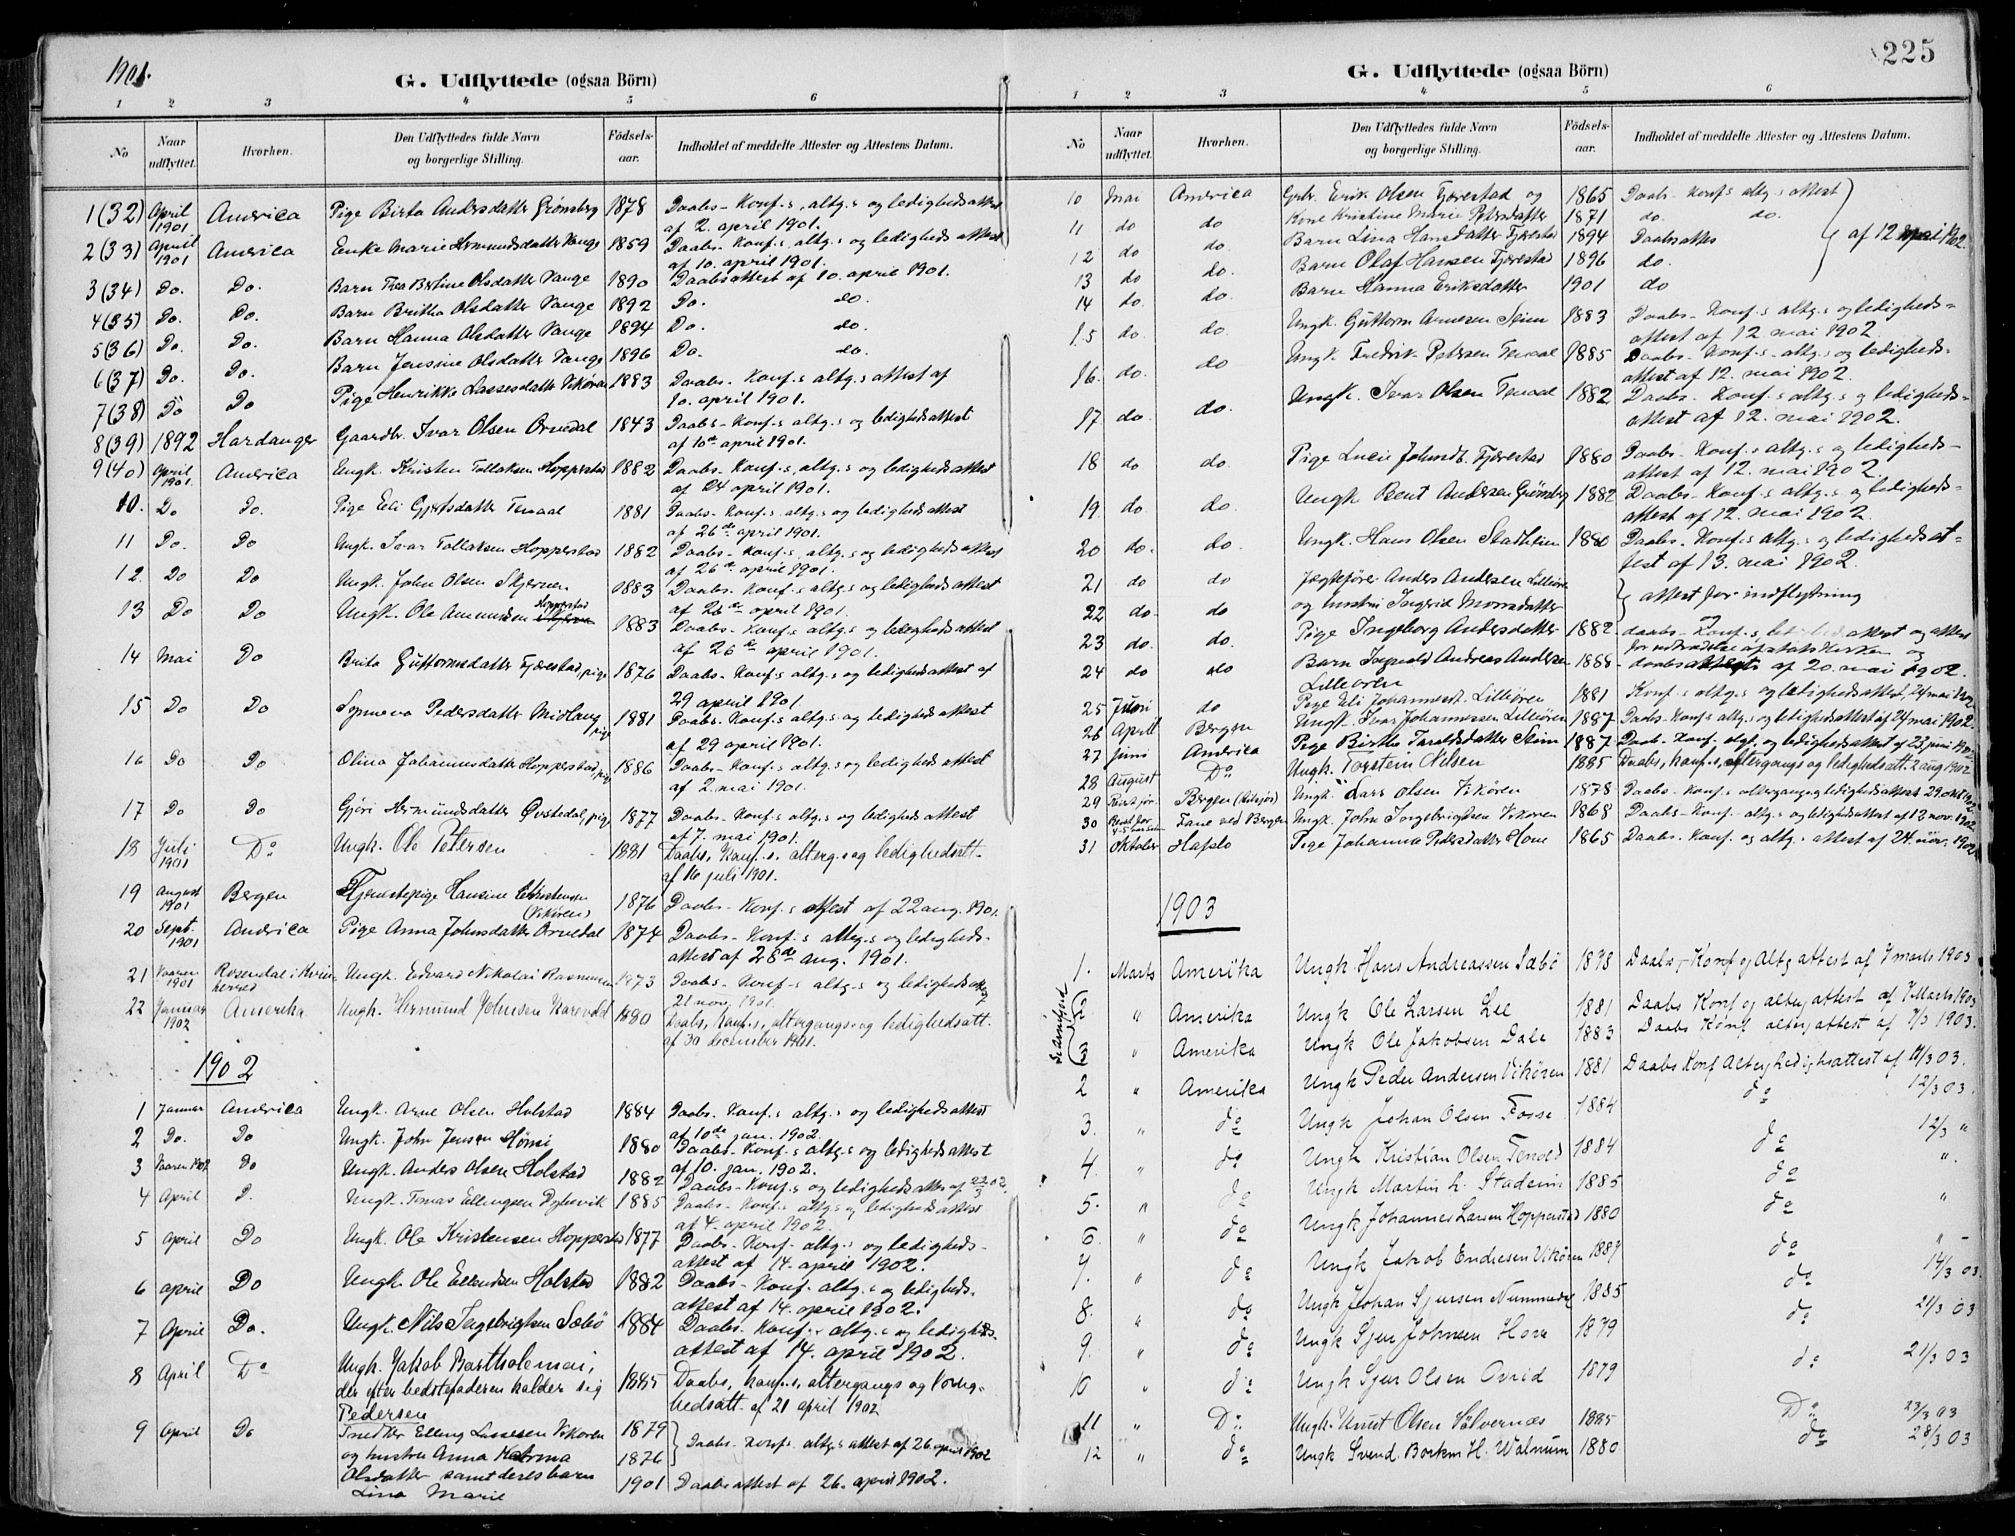 1901.
G. Udflyttede (ogsaa Börn)
1 2 3 4 5 6
No
Naar udflyttet.
Hvorhen.
Den Udflyttedes fulde Navn og borgerlige Stilling.
Födsels-aar.
Indholdet af meddelte Attester og Attestens Datum.
1 (32) April 1901 America Pige Birta Andersdatter Grønsberg 1878 Daabs- Konf.s, altg.s og ledighedsattest
af 2. april 1901.
2 (33) April 1901 America Enke Marie Hermundsdatter Vange 1859 Daabs- Konf.s altg.s og ledigheds attest
af 10. april 1901.
3 (34) Do. Do. Barn Thea Bertine Olsdatter Vange 1890 Daabsattest af 10. april 1901.
4 (35) Do. Do. Barn Britha Olsdatter Vange 1892 Do. do.
5 (36) Do. Do. Barn Hanna Olsdatter Vange 1894 Do. do.
6 (37) Do. Do. Barn Jensine Olsdatter Vange 1896 Do. do.
7 (38) Do Do Pige Henrikke Lassesdatter Vikøren 1883 Daabs- Konf.s altg.s attest af
10. april 1901.
8 (39) 1892 Hardanger Gaardbr. Ivar Olsen Orvedal 1843 Daabs- Konf.s altg.s og ledighedsattest
af 10de april 1901.
9 (40) April 1901. America Ungk. Kristen Tollaksen Hopperstad 1882 Daabs- Konf.s, altg.s og ledigheds attest
af 24 april 1901.
10. Do Do. Pige Eli Gjertsdatter Tenaal 1881 Daabs- Konf.s altg.s og ledighedsattest
af 26de april 1901.
11 Do. Do Ungk. Ivar Tollaksen Hopperstad 1882 Daabs- Konf.s, altg.s og ledighedsattest
af 26de april 1901.
12. Do Do Ungk. John Olsen Skjerven 1883 Daabs- Konf.s altg.s og ledigheds attest
af 26de april 1901.
13 Do Do Ungk. Ole Amundsen Hopperstad 1883 Daabs- Konf.s altg.s og ledigheds attest
af 26de april 1901.
14 Mai Do Brita Guttormsdatter Fjærestad, pige 1876 Daabs- Konf.s altg.s og ledighedsattest af
29 april 1901.
15 Do Do Synneva Pedersdatter Midlang, pige 1881 Daabs- Konf.s altg.s og ledigheds attest
af 29 april 1901.
16 Do Do Olina Johannesdatter Hopperstad, pige 1886 Daabs- Konf.s altg.s og ledigheds attest
af 2. mai 1901.
17 Do Do Gjöri Hermundsdatter Øvstedal, pige 1877 Daabs- Konf.s altg.s og ledigheds attest
af 7. mai 1901.
18 Juli 1901 Do Ungk. Ole Petersen 1881 Daabs, Konf.s, alterg.s og ledighedsatt.
af 16 juli 1901.
19 August 1901 Bergen Tjenstepige Hansine Christensen (Vikören) 1876 Daabs- Konf.s attest af 22 aug. 1901.
20 Sept. 1901 America Pige Anna Johnsdatter Orvedal 1874 Daabs- Konf.s altg.s og ledigheds-
attest af 28de aug. 1901.
21 Vaaren 1901 Rosendal i Kvinherred Ungk. Edvard Nikolai Rasmussen 1873 Daabs- Konf.s altg.s og ledigheds attest
21 nov. 1901.
22 Januar 1902 Amerika Ungk. Hermund Johnsen 1880 Daabs, Konf.s, altergangs- og ledighedsatt.
af 30 december 1901.
1902
1 Januar America Ungk. Arne Olsen Holstad 1884 Daabs. Konf.s altg.s og ledighedsattest
af 10de jan. 1902.
2 Do. Do Ungk. John Jensen Hönsi 1880 Daabs- Konf.s altg.s og ledigheds attest
af 10. jan. 1902.
3 Vaaren 1902 Do Ungk. Anders Olsen Holstad 1882 Daabs- Konf.s og ledigheds attes af 22/3 02.
4 April D. Ungk. Tomas Ellingsen Dybevik 1885 Daabs- Konf.s altg.s og ledigheds attest
af 4. april 1902.
5 April Do Ungk. Ole Kristensen Hopperstad 1877 Daabs- Konf- altg.s og ledigheds-
attest af 14. april 1902.
6 april Do Ungk. Ole Ellendsen Holstad 1882 Daabs- Konf- altg.s og ledigheds-
attest af 14. april 1902.
7 April Do. Ungk. Nils Ingebrigtsen Sæbö 1884 Daabs- Konf.s altg.s og ledigheds-
attest af 14. april 1902.
8 April Do Ungk. Jakob Bartholemai,
der efter bedstefaderen kalder sig
Pedersen 1885 Daabs, Konf.s, altergangs og ledig-
hedsatt. af 21 april 1902
9 April Do Elling Lassesen Vikøren 1879
og hustru Anna Katrina 1876 Daabs- Konf.s altg.s attest af 26 april 1902
Olsdatter samt deres barn
Lina Marie 1901 Daabsattest af 26. april 1902.
225
G. Udflyttede (ogsaa Börn)
1 2 3 4 5 6
No
Naar udflyttet.
Hvorhen.
Den Udflyttedes fulde Navn og borgerlige Stilling.
Födsels-aar.
Indholdet af meddelte Attester og Attestens Datum.
10 Mai America Gbr. Erik Olsen Fjærestad og 1865 Daabs- Konf.s altg.s attest
11 do do Kone Kristine Marie Petersdatter 1871 do. do.
12 do do. Barn Lina Hansdatter Fjærestad 1894 Daabsattes af 12 april 1902.
13 do do. Barn Olaf Hansen Fjærestad 1896 do.
14 do. do. Barn Hanna Eriksdatter 1901 do
15 do. do. Ungk. Guttorm Arnesen Stim 1883 Daabs- Konf.s altg.s og ledigheds-
attest af 12 mai 1902.
16. do. do Ungk. Fredrik Petersen Tenaal 1885 Daabs- Konf.s- altg.s og ledigheds-
attest af 12. mai 1902.
17 do. do. Ungk. Ivar Olsen Tenaal 1882 Daabs- Konf.s altg.s og ledigheds-
attest af 12. mai 1902.
18 do do. Pige Lucie Johnsd. Fjærestad 1880 Daabs- Konf.s altg.s og ledigheds-
attest af 12. mai 1902
19. do do. Ungk Bent Andersen Grønsberg 1882 Daabs- Konf.s altg.s og ledigheds-
attest af 12. mai 1902.
20 do. do. Ungk. Hans Olsen Stadheim 1880 Daabs- Konf.s altg.s og ledighedsat-
test af 13. mai 1902.
21 do do Jægtefører Anders Andersen Lilleören
22 do do og hustru Ingerid Monsdatter attest for indflytning
23 do. do. Pige Ingeborg Andersdatter 1882 daabs- Konf.s, ledigheds attest og attest
for udtrædelse af statskirken og
24 do do Barn Ingvald Andreas Andersen Lilleören 1888 daabsattest af 20. mai 1902.
25 Juni do Pige Eli Johannesd. Lilleören 1881 Konf.s altg.s og ledigheds attest 24 mai 1902
26 April Bergen Ungk. Ivar Johannessen Lilleören 1887 Daabs- Konf.s altg.s og ledighedsattest af 24 mai 1902.
27 juni America Pige Birthe Tareldsdatter Stim 1887 Daab. Konf. altg. og ledigheds attest af 23 juni 1902
28 August Do Ungk. Torstein Nilsen 1885 Daabs, Konf.s, altergangs og ledighedsatt. 2 aug 1902
29 Bergen Ungk. Lars Olsen Vikören 1878 Daabs- Konf.s altergangs og ledigheds attest 29. okt. 1902
30 Fane ved Bergen Ungk. John Ingebrigtsen Vikoren 1868 Daabs- Konf.s altg.s og ledigheds attest af 13 nov. 1902
31 Oktober Hafslo Pige Johanna Pedersdatter Hove 1865 Daabs- Konf. og altg.s attest af 24. nov. 1902
1903
1. Marts Amerika Ungk Hans Andreassen Sæbö 1878 Daabs- Konf og Altg attest af 7 marts 1903
2 " Amerika Ungk Ole Larsen Lee 1881 Daabs Konf og alterg attest af 7 Marts 1903
3 " Amerika Ungk Ole Jakobsen Dale 1883 Daabs Konf alterg attest af 7/3 1903.
2 " Amerika Ungk Peder Andersen Vikören 1881 Daabs Konf Alterg Ledighsattest af 11/3 03.
3. " do Ungk Johan Olsen Fosse 1884 do 12/3 03.
4. " do Ungk Kristian Olsen Tenold 1884 do 12/3 "
5. " do Ungk Martin L. Stadeim 1885 do ".
6. " do Ungk Johannes Larsen Hopperstad 1880 do "
7. " do Ungk Jakob Endresen Vikören 1889 do " -
8. " do Ungk Johan Sjursen Nummedal 1885 do 14/3 03.
9. " do Ungk Sjur Johnsen Hove 1879 do 21/3 03
10 " do Ungk Sjur Olsen Ovrid 1879 do 21/3 03
11 " Do Ungk. Knut Olsen Sölvernæs 1885 Do 23/3 03
12 " do Ungk Svend Borkm H. Walnum 1880 do 28/3 03